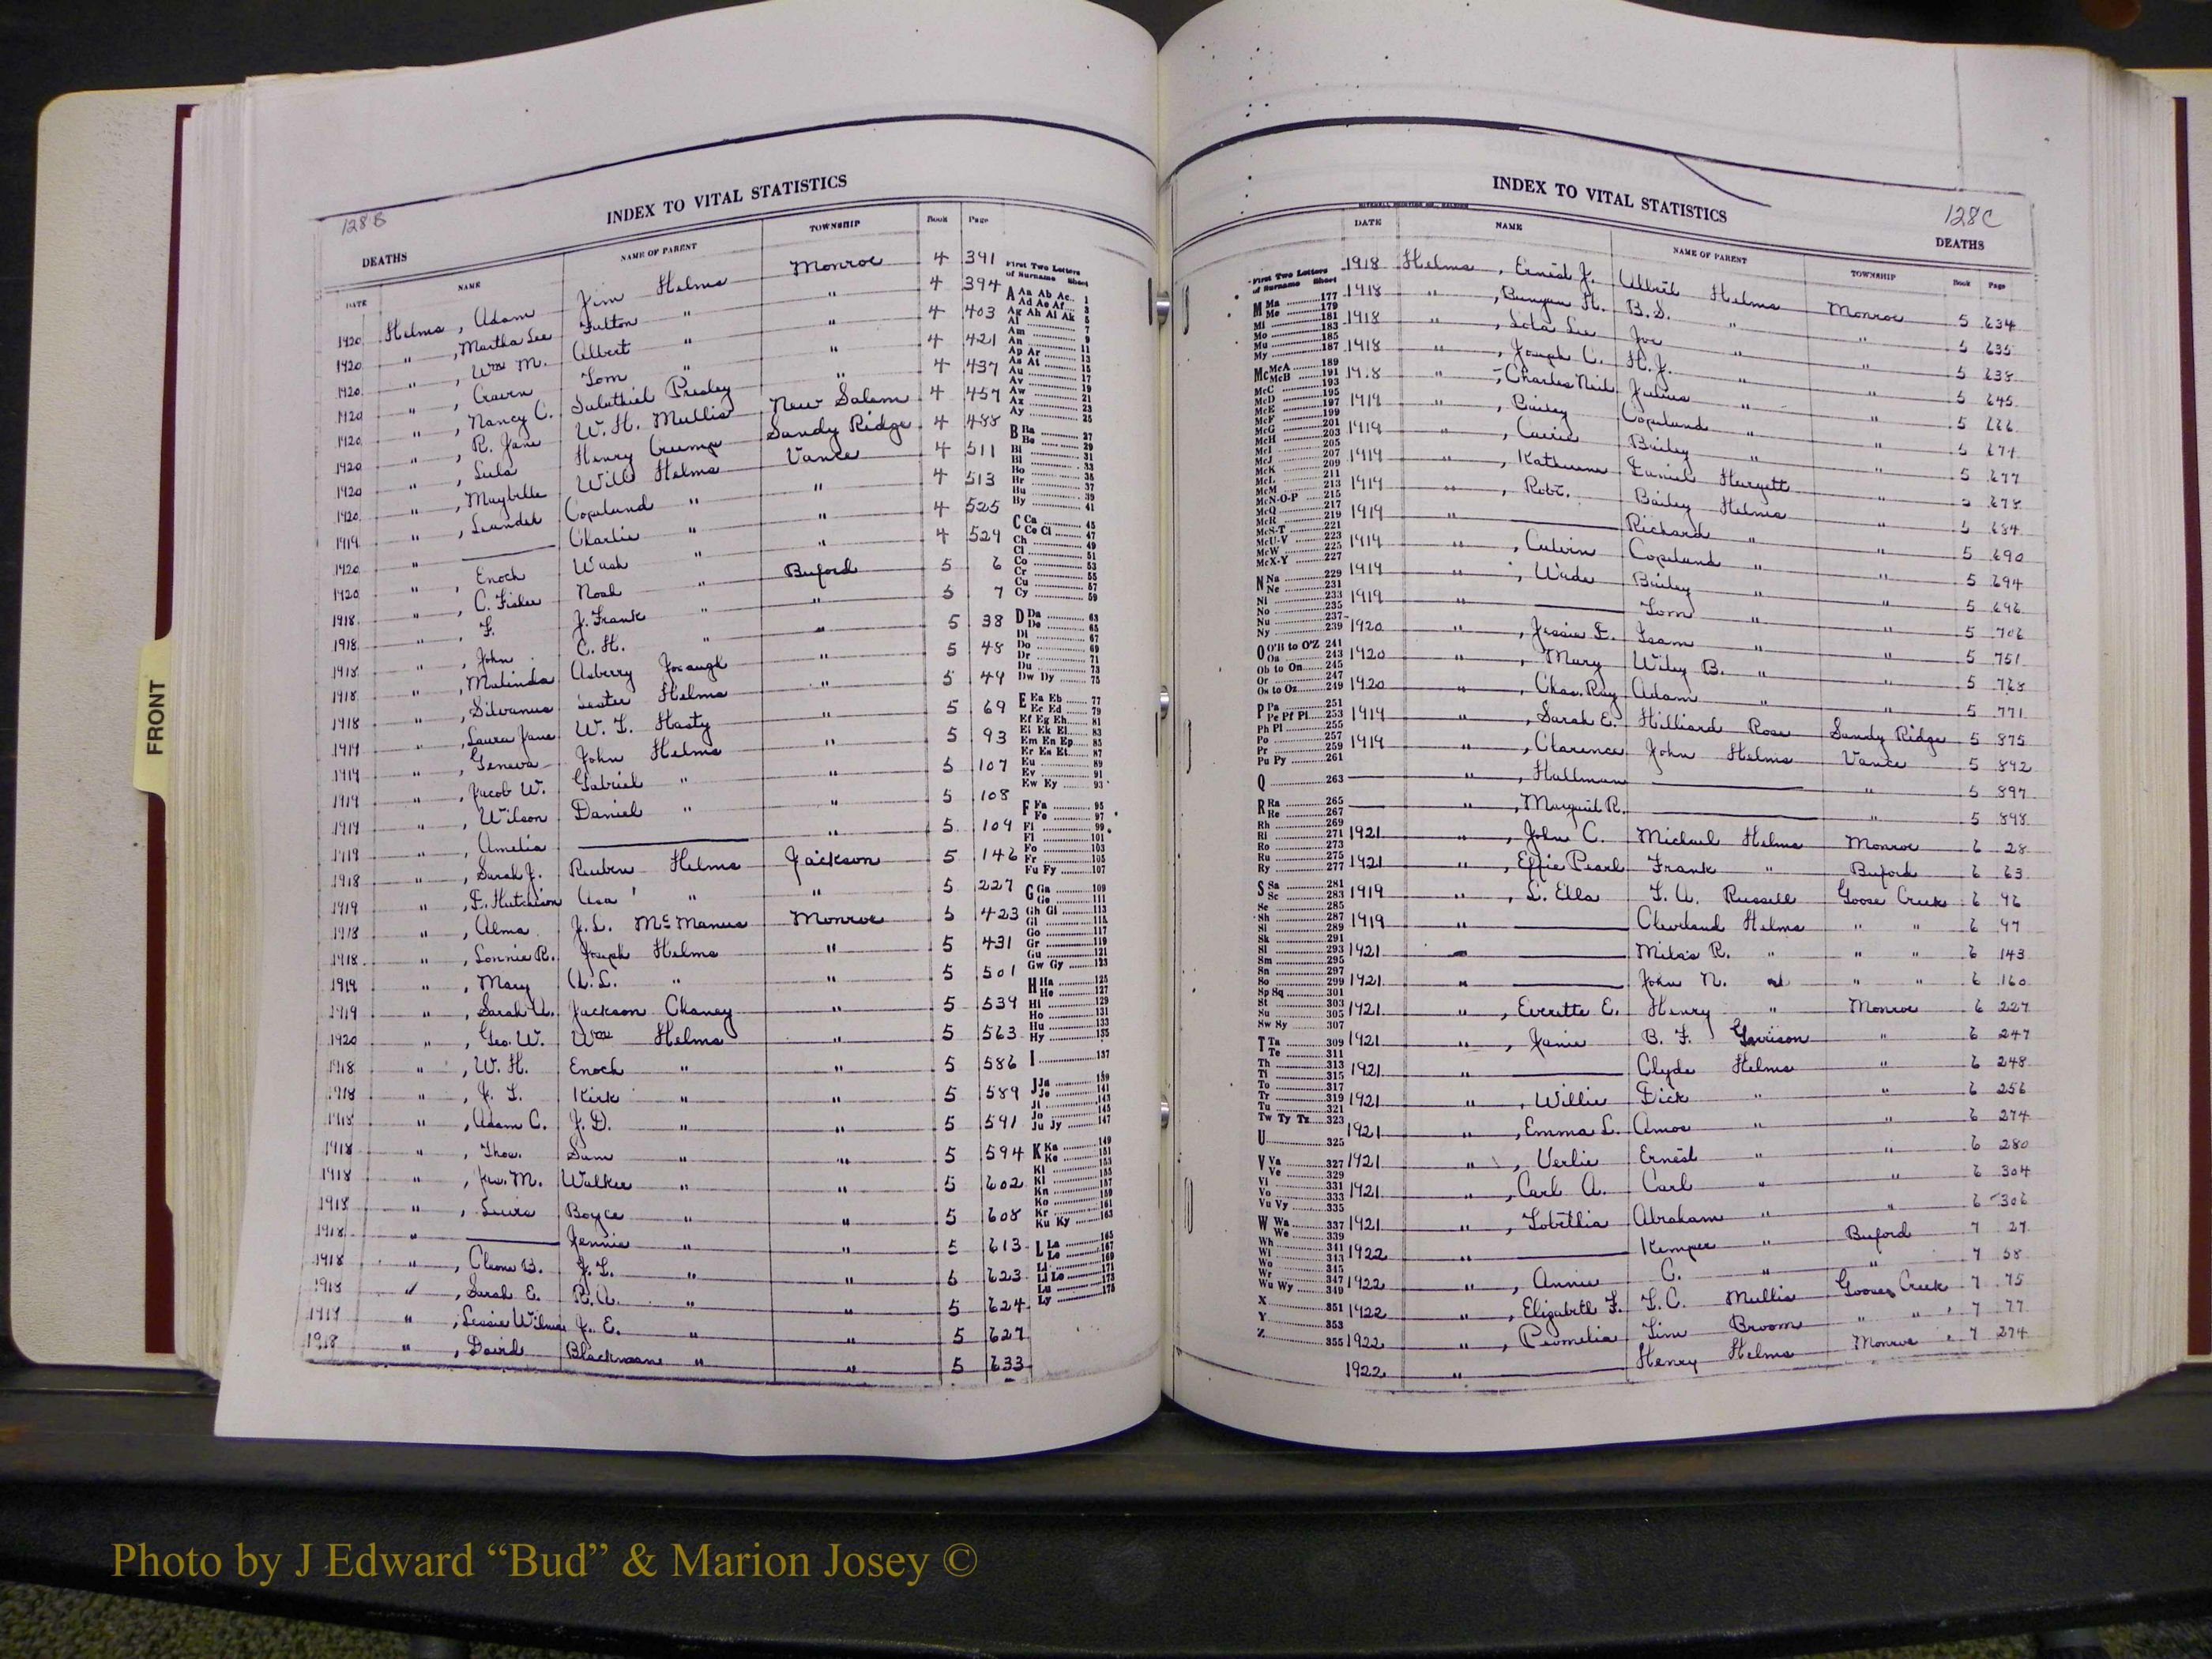 128B
INDEX TO VITAL STATISTICS
DEATHS
DATE NAME NAME OF PARENT TOWNSHIP Book Page
1920 Helms, Adam Jim Helms Monroe 4 391
1920 " , Martha Lee Fulton " " 4 394
1920 " , Wm M. Albert " " 4 403
1920 " , Craven Tom " " 4 421
1920 " , Nancy C. Salathiel Presley " 4 437
1920 " , R. Jane W. H. Mullis New Salem 4 457
1920 " , Lula Henry Crump Sandy Ridge 4 488
1920 " , Maybelle Will Helms Vance 4 511
1919 " , Leander Copeland " " 4 513
1920 " Charlie " " 4 525
1920 " , Enoch Wash " " 4 529
1918 " , C. Fisher Noah " Buford 5 6
1918 " , F. J. Frank " " 5 7
1918 " , John C. H. " " 5 38
1918 " , Malinda Asberry " 5 48
1918 " , Silvanus Lester Helms " 5 49
1919 " , Laura Jane W. L. Hasty " 5 69
1919 " , Geneva John Helms " 5 93
1919 " , Jacob W. Gabriel " " 5 107
1919 " , Wilson Daniel " " 5 108
1919 " , Amelia " 5 109
1918 " , Sarah J. Reuben Helms Jackson 5 146
1919 " , F. Hutchison Asa " " 5 227
1918 " , Alma J. L. McManus Monroe 5 423
1918 " , Lonnie R. Joseph Helms " 5 431
1919 " , Mary A. L. " " 5 501
1919 " , Sarah A. Jackson Chaney " 5 539
1920 " , Geo. W. Wm Helms " 5 563
1918 " , W. H. Enoch " " 5 586
1918 " , J. L. Kirk " " 5 589
1918 " , Adam C. J. D. " " 5 591
1918 " , Thos. Sam " " 5 594
1918 " , Jas. M. Walker " " 5 602
1918 " , Lewis Boyce " " 5 608
1918 " Jennie " " 5 613
1918 " , Cleone B. J. L. " " 5 623
1918 " , Sarah E. R. A. " " 5 624
1919 " , Lessie Wilma J. E. " " 5 627
1918 " , David Blackmon " " 5 633
First Two Letters of Surname Sheet
A Aa Ab Ac 1
Ad Ae Af 3
Ag Ah Ai Ak 5
Al 7
Am 9
An 11
Ap Ar 13
As At 15
Au 17
Av 19
Aw 21
Ax 23
Ay 25
B Ba 27
Be 29
Bi 31
Bl 33
Bo 35
Br 37
Bu 39
By 41
C Ca 45
Ce Ci 47
Ch 49
Cl 51
Co 53
Cr 55
Cu 57
Cy 59
D Da 63
De 65
Di 67
Do 69
Dr 71
Du 73
Dw Dy 75
E Ea Eb 77
Ec Ed 79
Ef Eg Eh 81
Ei Ek El 83
Em En Ep 85
Er Es Et 87
Eu 89
Ev 91
Ew Ey 93
F Fa 95
Fe 97
Fi 99
Fl 101
Fo 103
Fr 105
Fu Fy 107
G Ga 109
Ge 111
Gh Gi 113
Gl 115
Go 117
Gr 119
Gu 121
Gw Gy 123
H Ha 125
He 127
Hi 129
Ho 131
Hu 133
Hy 135
I 137
J Ja 139
Je 141
Ji 143
Jo 145
Ju Jy 147
K Ka 149
Ke 151
Ki 153
Kl 155
Kn 157
Ko 159
Kr 161
Ku Ky 163
L La 165
Le 167
Li 169
Ll Lo 171
Lu 173
Ly 175
INDEX TO VITAL STATISTICS
128C
DEATHS
DATE NAME NAME OF PARENT TOWNSHIP Book Page
1918 Helms, Ernest J. Albert Helms Monroe 5 634
1918 " , Bunyan H. B. S. " " 5 635
1918 " , Lola Lee Joe " " 5 638
1918 " , Joseph C. H. J. " " 5 645
1918 " , Charles Neil Julius " " 5 666
1919 " , Bailey Copeland " " 5 674
1919 " , Carrie Bailey " " 5 677
1919 " , Katherine Daniel Hargett " 5 678
1919 " , Robt. Bailey Helms " 5 684
1919 " Richard " " 5 690
1919 " , Calvin Copeland " " 5 694
1919 " , Wade Bailey " " 5 696
1919 " Tom " " 5 706
1920 " , Jessie F. Isam " " 5 751
1920 " , Mary Wiley B. " " 5 768
1920 " , Chas. Ray Adam " " 5 771
1919 " , Sarah E. Hilliard Rose Sandy Ridge 5 875
1919 " , Clarence John Helms Vance 5 892
" , Hallman " 5 897
" , Margaret R. " 5 898
1921 " , John C. Michael Helms Monroe 6 28
1921 " , Effie Pearl Frank " Buford 6 63
1919 " , L. Ella L. A. Russell Goose Creek 6 96
1919 " Cleveland Helms " " 6 97
1921 " Milas R. " " " 6 143
1921 " John N. " " " 6 160
1921 " , Everette E. Henry " Monroe 6 227
1921 " , Janie B. F. Garrison " 6 247
1921 " Clyde Helms " 6 248
1921 " , Willie Dick " " 6 256
1921 " , Emma L. Amos " " 6 274
1921 " , Verlie Ernest " " 6 280
1921 " , Carl A. Carl " " 6 304
1921 " , Tobithia Abraham " " 6 306
1922 " Kemper " Buford 7 27
1922 " , Annie C. " " 7 58
1922 " , Elizabeth F. L. C. Mullis Goose Creek 7 75
1922 " , Permelia Jim Broom " " 7 77
1922 " Henry Helms Monroe 7 274
First Two Letters of Surname Sheet
M Ma 177
Me 179
Mi 181
Mo 183
Mu 185
My 187
Mc McA 189
McB 191
McC 193
McD 195
McE 197
McF 199
McG 201
McH 203
McI 205
McJ 207
McK 209
McL 211
McM 213
McN-O-P 215
McQ 217
McR 219
McS-T 221
McU-V 223
McW 225
McX-Y 227
N Na 229
Ne 231
Ni 233
No 235
Nu 237
Ny 239
O O'B to O'Z 241
Oa 243
Ob to On 245
Or 247
Os to Oz 249
P Pa 251
Pe Pf Pi 253
Ph Pl 255
Po 257
Pr 259
Pu Py 261
Q 263
R Ra 265
Re 267
Rh 269
Ri 271
Ro 273
Ru 275
Ry 277
S Sa 281
Sc 283
Se 285
Sh 287
Si 289
Sk 291
Sl 293
Sm 295
Sn 297
So 299
Sp Sq 301
St 303
Su 305
Sw Sy 307
T Ta 309
Te 311
Th 313
Ti 315
To 317
Tr 319
Tu 321
Tw Ty Tz 323
U 325
V Va 327
Ve 329
Vi 331
Vo 333
Vu Vy 335
W Wa 337
We 339
Wh 341
Wi 343
Wo 345
Wr 347
Wu Wy 349
X 351
Y 353
Z 355
FRONT
Photo by J Edward “Bud” & Marion Josey ©